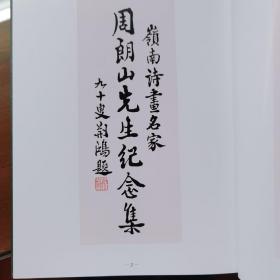 嶺南诗畫名家
周朗山先生纪念集
九十叟荆鴻题
—2—